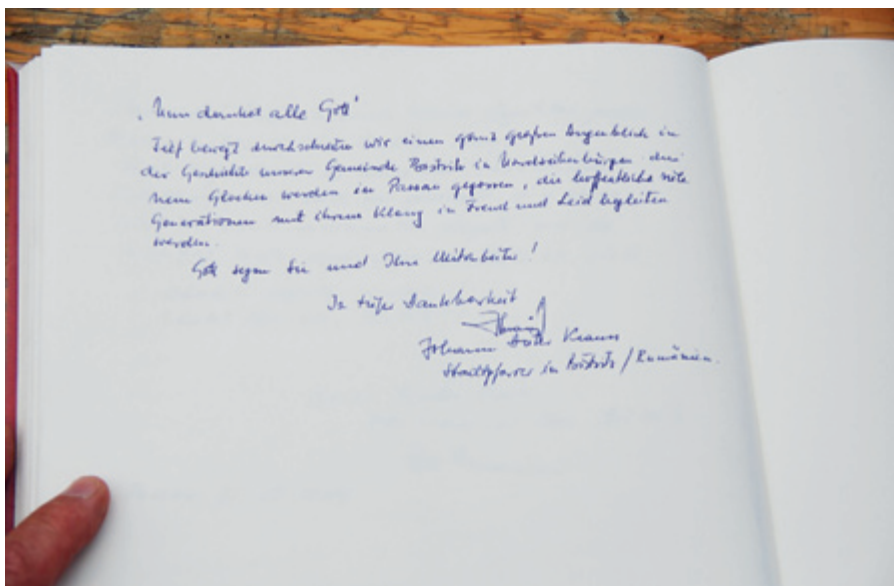 „Nun danket alle Gott“
Tief bewegt durchschreiten wir einen ganz großen Augenblick in
der Geschichte unserer Gemeinde Bistritz in Nordsiebenbürgen: drei
neue Glocken werden in Passau gegossen, die hoffentlich viele
Generationen mit ihrem Klang in Freud und Leid begleiten
werden.
Gott segne Sie und Ihre Mitarbeiter!
In tiefer Dankbarkeit
Johann Dieter Krauss
Stadtpfarrer in Bistritz / Rumänien.